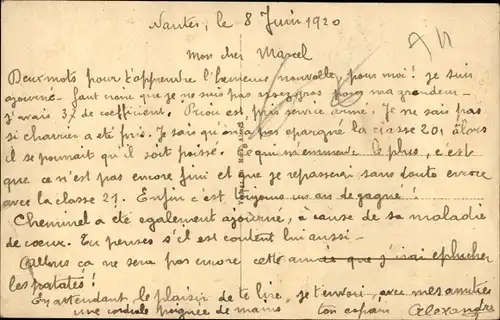 Nantes, le 8 Juin 1920
mon cher Marcel
Deux mots pour t'apprendre l'heureuse nouvelle, pour moi! je suis
ajourné - faut croire que je ne suis pas assez gros pour ma grandeur -
J'avais 37 de coefficient. Priou est pris service armé. Je ne sais pas
si charrier a été pris. Je sais qu'on a pas épargné la classe 201 alors
il se pourrait qu'il soit poissé. ce qui m'emmerde le plus, c'est
que ce n'est pas encore fini et que je repasserai sans doute encore
avec la classe 21. Enfin c'est toujours un an de gagné!
Cheminel a été également ajourné, à cause de sa maladie
de cœur. Tu penses s'il est content lui aussi -
Allons ca ne sera pas encore cette année que j'irai éplucher
les patates!
En attendant le plaisir de te lire, je t'envoie, avec mes amitiés
une cordiale poignée de mains ton copain Alexandre